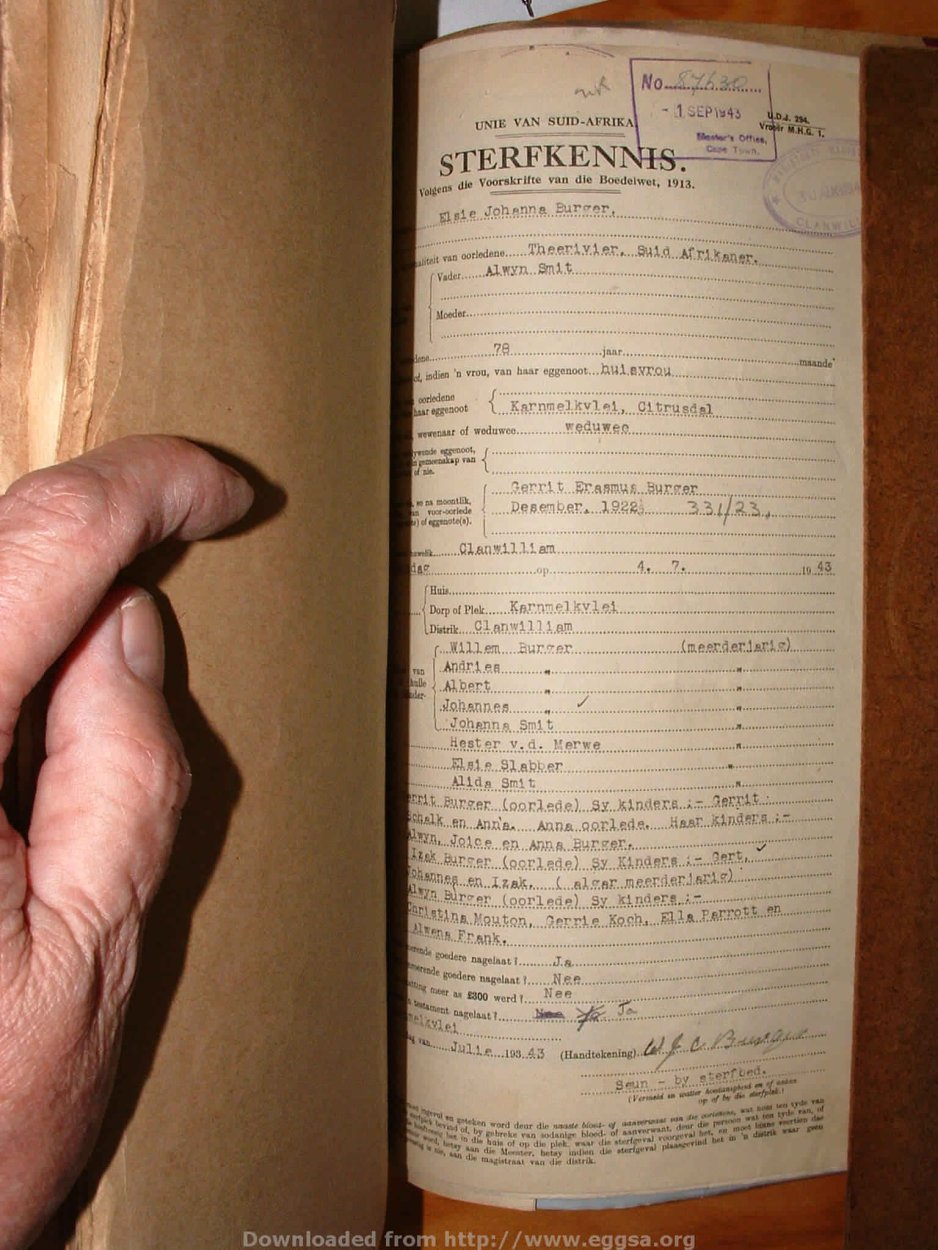 No. 87630
- 1 SEP 1943
Master's Office,
Cape Town.
U.D.J. 294.
Vroeër M.H.G. 1.
UNIE VAN SUID-AFRIKA
STERFKENNIS.
Volgens die Voorskrifte van die Boedelwet, 1913.
CLANWIL
Elsie Johanna Burger.
naliteit van oorledene Theerivier, Suid Afrikaner.
Vader Alwyn Smit
Moeder
dene 78 jaar maande
of, indien 'n vrou, van haar eggenoot huisvrou
oorledene
haar eggenoot Karnmelkvlei, Citrusdal
wewenaar of weduwee weduwee
ywende eggenoot,
in gemeenskap van
of nie.
Gerrit Erasmus Burger
so na moontlik,
an voor-oorlede
e) of eggenote(s).
Desember, 1922; 331/23,
huwelik Clanwilliam
dag op 4. 7. 1943
Huis
Dorp of Plek Karnmelkvlei
Distrik Clanwilliam
Willem Burger (meerderjarig)
van Andries " "
hulle Albert " "
nder- Johannes " ✓ "
Johanna Smit "
Hester v.d. Merwe "
Elsie Slabber "
Alida Smit "
errit Burger (oorlede) Sy kinders :- Gerrit
chalk en Anna. Anna oorlede. Haar kinders :-
Alwyn, Joice en Anna Burger.
Izak Burger (oorlede) Sy Kinders :- Gert, ✓
Johannes en Izak. ( algar meerderjarig)
Alwyn Burger (oorlede) Sy kinders :-
Christina Mouton, Gerrie Koch, Ella Parrott en
Alwena Frank.
oerende goedere nagelaat? Ja
roerende goedere nagelaat? Nee
atting meer as £300 werd? Nee
n testament nagelaat? Ja
melkvlei
ag van Julie 193 43 (Handtekening) W J C Burger
Seun - by sterfbed.
(Vermeld in watter hoedanigheid en of anders
op of by die sterfplek.)
moet ingevul en geteken word deur die naaste bloed- of aanverwant van die oorledene, wat nom ten tyde van
sterfplek bevind of, by gebreke van sodanige bloed- of aanverwant, deur die persoon wat ten tyde van, of
beheer het in die huis of op die plek, waar die sterfgeval voorgeval het, en moet binne veertien dae
word, hetsy aan die Meester, hetsy indien die sterfgeval plaasgevind het in 'n distrik waar geen
is nie, aan die magistraat van die distrik.
Downloaded from http://www.eggsa.org